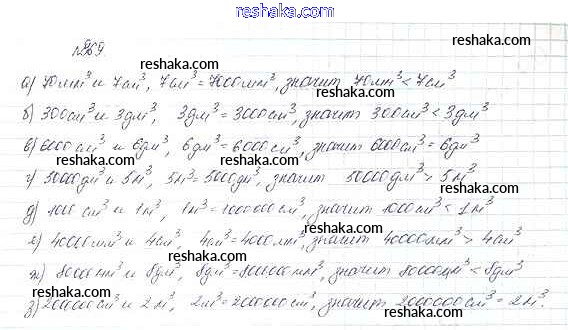 reshaka.com
№869
reshaka.com
а) 70мм³ и 7см³, 7см³ = 7000мм³, значит 70мм³ < 7см³
б) 300см³ и 3дм³, 3дм³ = 3000см³, значит 300см³ < 3дм³
в) 6000см³ и 6дм³, 6дм³ = 6000см³, значит 6000см³ = 6дм³
г) 50000дм³ и 5м³, 5м³ = 5000дм³, значит 50000дм³ > 5м³
д) 1000см³ и 1м³, 1м³ = 1000000см³, значит 1000см³ < 1м³
е) 40000мм³ и 4см³, 4см³ = 4000мм³, значит 40000мм³ > 4см³
ж) 80000мм³ и 8дм³, 8дм³ = 8000000мм³, значит 80000мм³ < 8дм³
з) 2000000см³ и 2м³, 2м³ = 2000000см³, значит 2000000см³ = 2м³.
reshaka.com